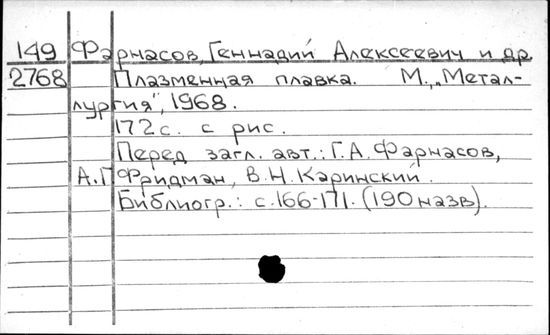 149 Фарнасов, Геннадий Алексеевич и др.
2768 Плазменная плавка. М., „Метал-
лургия", 1968.
172 с. с рис.
Перед загл. авт.: Г.А. Фарнасов,
А.Г Фридман, В.Н. Каринский.
Библиогр.: с. 166-171. (190 назв).